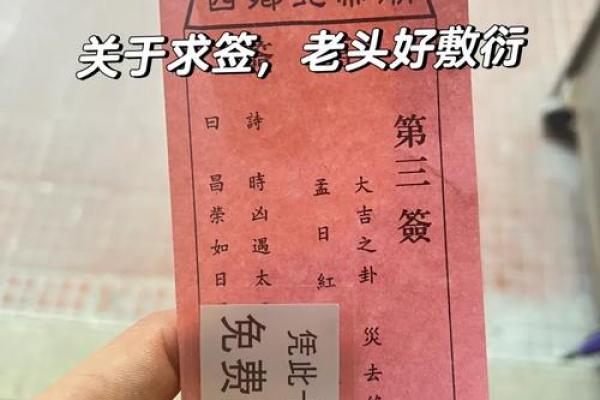 西鄉北帝廟
关于求签，老头好敷衍
第三簽
大吉之卦 災去
孟日紅
詩 時凶遇太
曰 昌榮如日
凭此一
免费